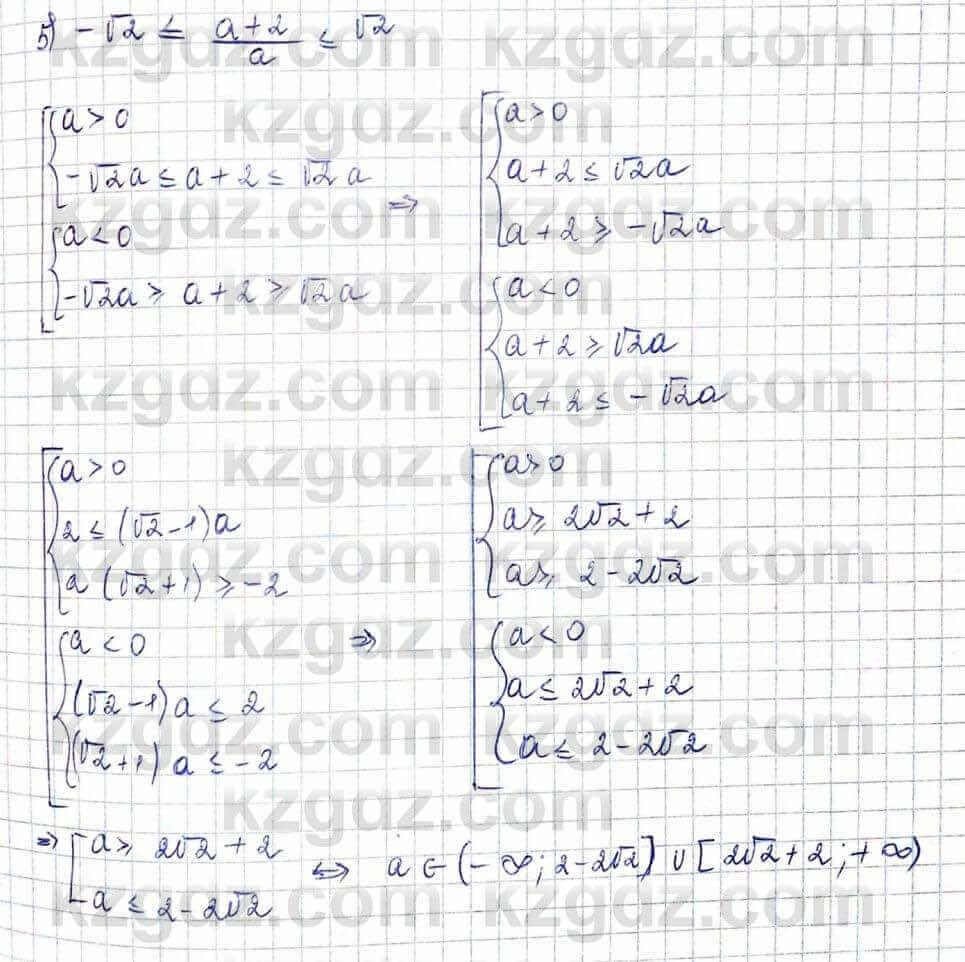 5) -√2 ≤ (a+2)/a ≤ √2
[{a > 0
-√2a ≤ a+2 ≤ √2a
{a < 0
-√2a ≥ a+2 ≥ √2a
⇒
[{a > 0
a+2 ≤ √2a
a+2 ≥ -√2a
{a < 0
a+2 ≥ √2a
a+2 ≤ -√2a
[{a > 0
2 ≤ (√2-1)a
a(√2+1) ≥ -2
{a < 0
(√2-1)a ≤ 2
(√2+1)a ≤ -2
⇒
[{a > 0
a ≥ 2√2+2
a ≥ 2-2√2
{a < 0
a ≤ 2√2+2
a ≤ 2-2√2
⇒ [a ≥ 2√2+2
a ≤ 2-2√2
⇔ a ∈ (-∞; 2-2√2] ∪ [2√2+2; +∞)
kzgdz.com